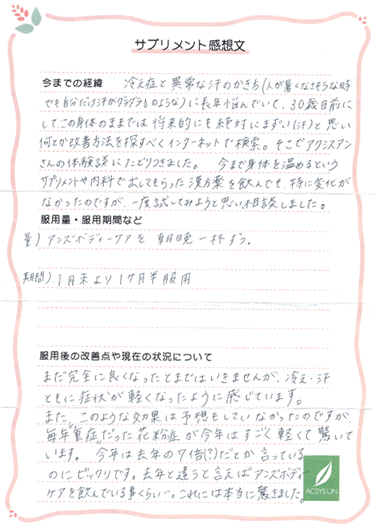 サプリメント感想文
今までの経緯 冷え症と異常な汗のかき方(人が暑くなさそうな時
でも自分だけ汗がダラダラのような)に長年悩んでいて、30歳目前に
してこの身体のままでは将来的にも絶対にまずい(汗)と思い
何とか改善方法を探すべくインターネットで検索。そこでアクシスアン
さんの体験談にたどりつきました。 今まで身体を温めるという
サプリメントや内科で出してもらった漢方薬を飲んでも、特に変化が
なかったのですが、一度試してみようと思い相談しました。
服用量・服用期間など
量) アンズボディーケアを 朝晩一杯ずつ。
期間) 1月末より1ヶ月半服用
服用後の改善点や現在の状況について
まだ完全に良くなったとまではいきませんが、冷え・汗
ともに症状が軽くなったように感じています。
また、このような効果は予想もしていなかったのですが
毎年"重症"だった花粉症が今年はすごく軽くて驚いて
います。 今年は去年の7倍(!?)だとか言っている
のにビックリです。去年と違うと言えばアンズボディー
ケアを飲んでいる事くらい…。これには本当に驚きました。
ACSYS-UN